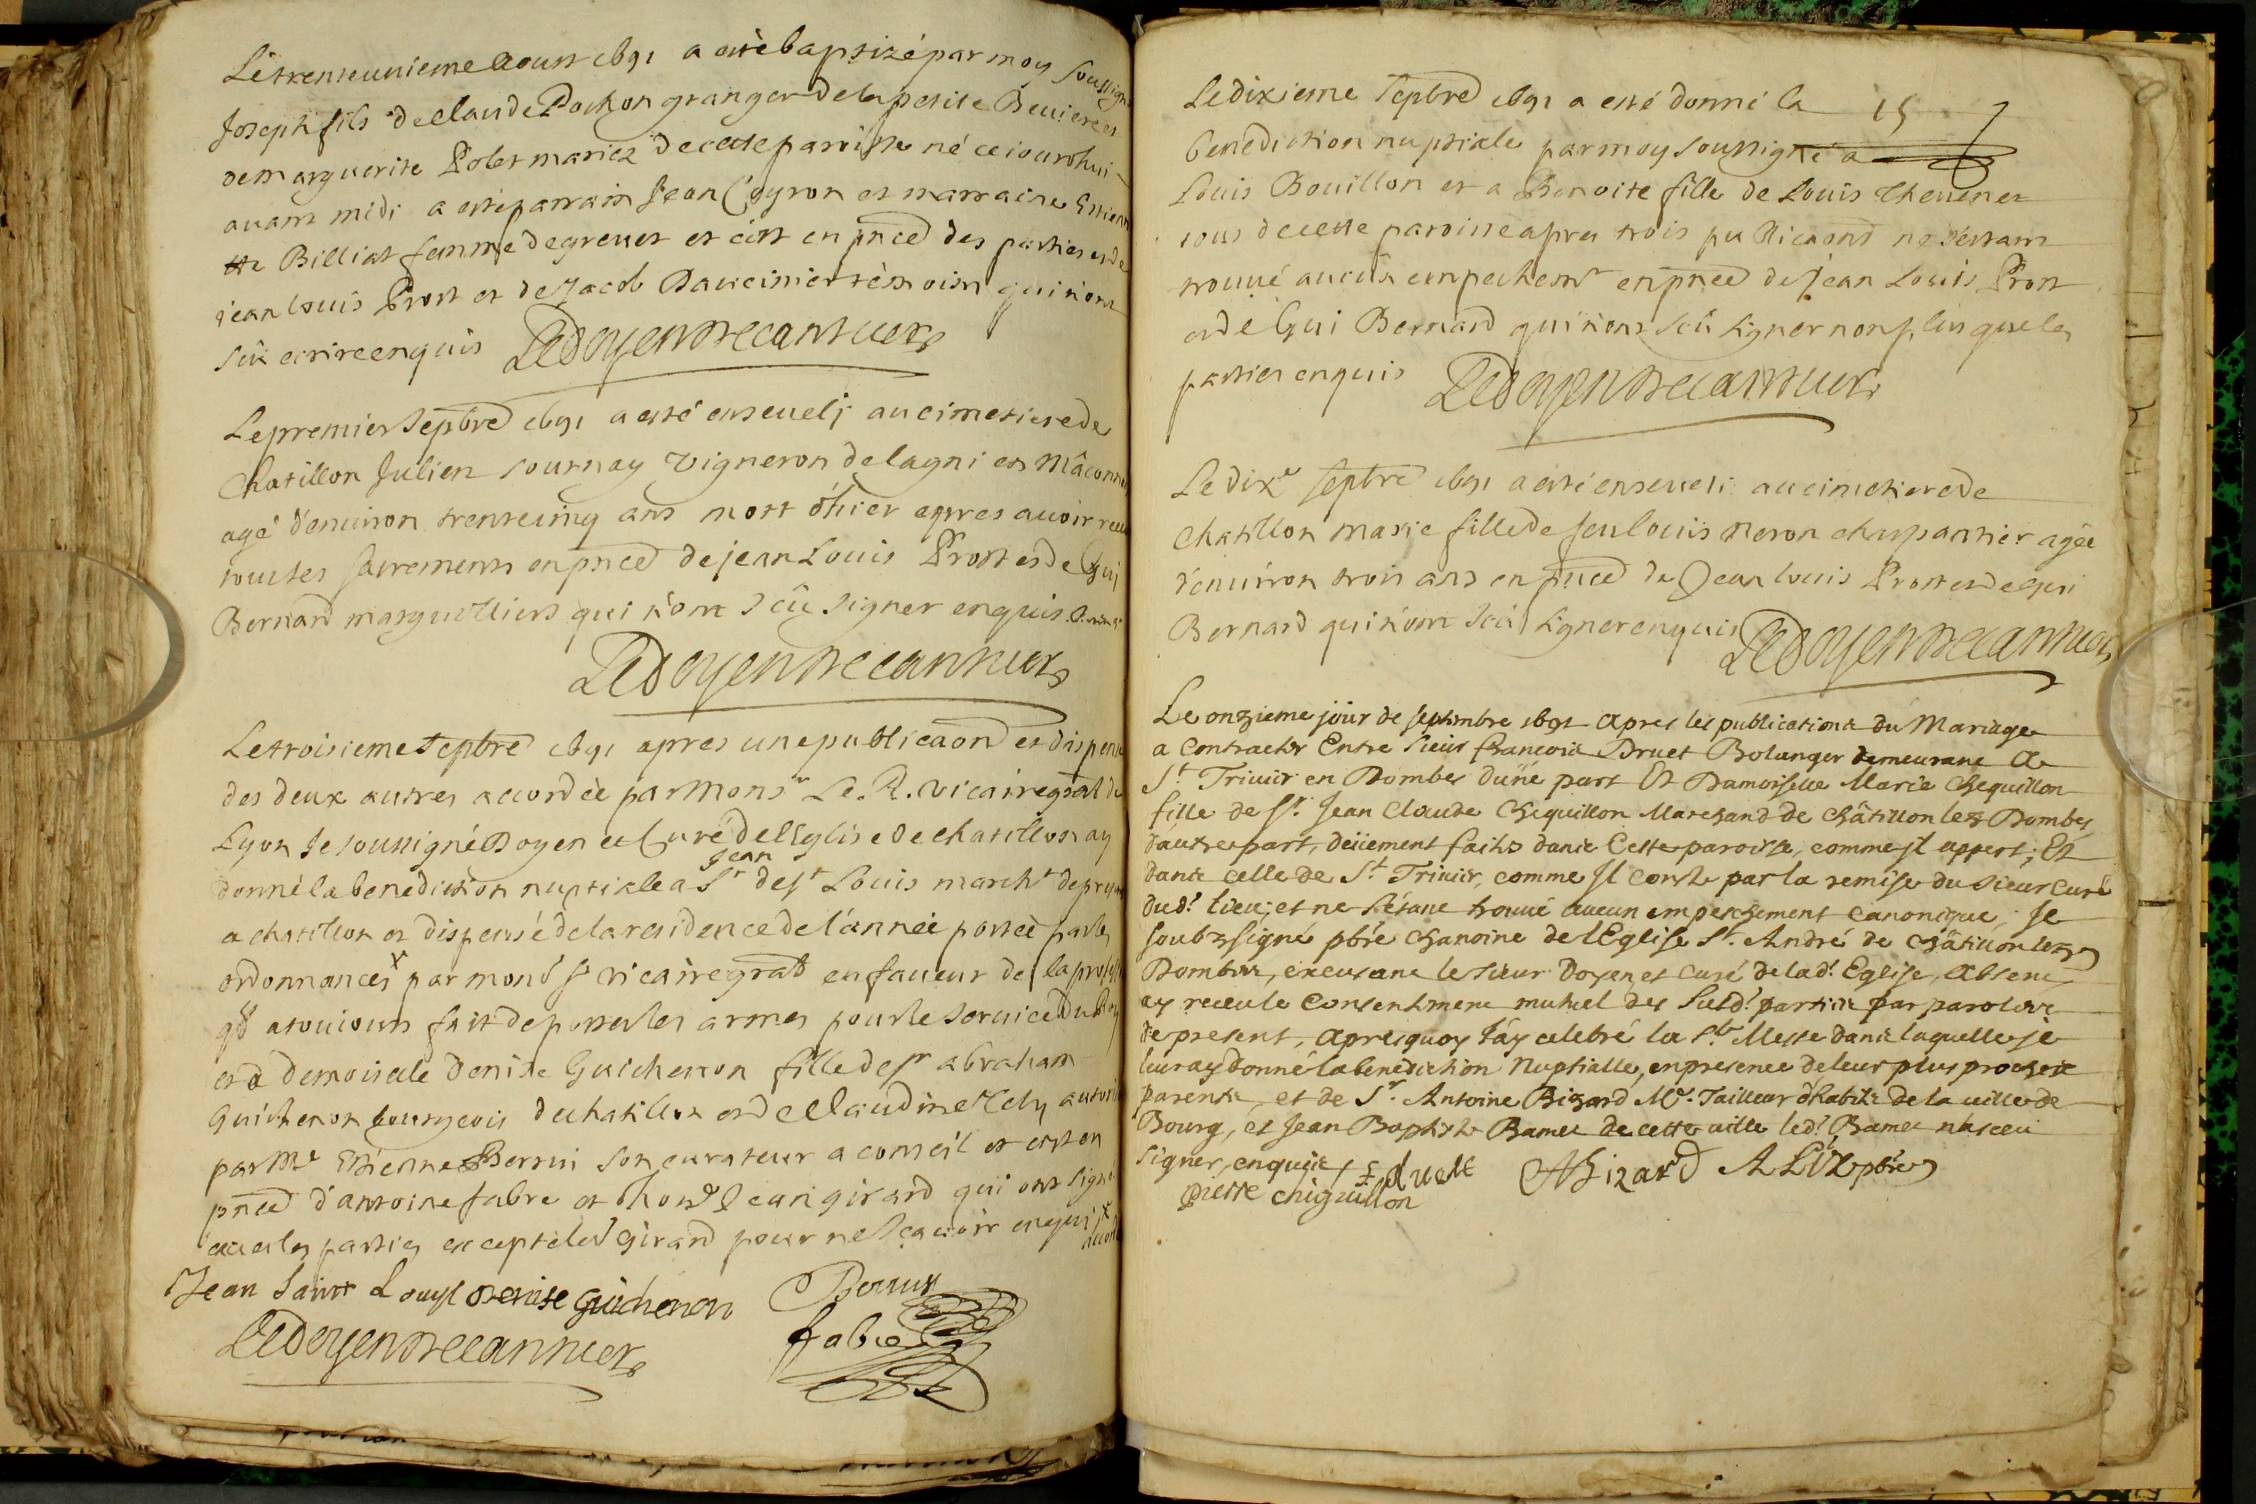 Le trenteunieme Aoust 1691 a esté baptizé par moy soussigné
Joseph fils de Claude Pochon granger de la petite Beviere et
de marguerite Pobet mariez de cette paroisse né ce iourdhui
avant midi a esté parrain Jean Coyron et marraine Estienn
tte Billiat femme de grevet et c'est en pnce des parties et de
jean louis Prost et de Jacob Daveinier tesmoins qui n'ont
sceu ecrire enquis Ledoyen Decannier
Le premier Septbre 1691 a esté enseveli au cimetiere de
Chatillon Julien tournay vigneron de lagni en Mâconnois
agé d'environ trentecinq ans mort d'hier apres avoir receu
tous les sacrements en pnce de jean Louis Prost et de Gui
Bernard marguilliers qui n'ont sceu signer enquis
Ledoyen Decannier
Le troisieme Septbre 1691 apres une publicaõn et dispense
des deux autres accordée par Monsr Le R. vicaire gnral de
Lyon Je soussigné Doyen et Curé de l'Eglise de chatillon ay
donné la benediction nuptiale a Sr Jean de St Louis marcht de pnt
a chatillon et dispensé de la residence de l'année portée par les
ordonnances x par mond sr vicaire gnral en faveur de la profession
ql a tousiours fait de porter les armes pour le service du Roy
et a demoiselle Denise Guichenon fille de sr abraham
Guichenon bourgeois de chatillon et de Claudine Tely autorisée
par Me Etienne Bernin son curateur a conseil et c'est en
pnce d'antoine fabre et de hond Jean girard qui ont signé
avec les parties excepté led Girard pour ne sçavoir enquis x
accordée
Jean Saint Louys Denise Guichenon Bernin
Ledoyen Decannier fabre
15
Le dixieme Septbre 1691 a esté donné la
benediction nuptiale par moy soussigné a
Louis Bouillon et a Benoite fille de Louis Thevenet
tous de cette paroisse apres trois publicaons ne s'estant
trouvé aucun empechemt en pnce de jean Louis Prost
et de Gui Bernard qui n'ont sceu signer non plus que les
parties enquis Ledoyen Decannier
Le dixe septbre 1691 a esté enseveli au cimetiere de
Chatillon Marie fille de feu louis Neron charpantier agée
d'environ trois ans en pnce de Jean louis Prost et de Gui
Bernard qui n'ont sceu signer enquis Ledoyen Decannier
Le onzieme jour de septembre 1691 apres les publications du Mariage
a Contracter Entre sieur françois Druet Bolanger demeurant a
St Trivier en Dombes dune part Et Damoiselle Marie Chequillon
fille de Sr Jean Claude Chequillon Marchand de Châtillon lez Dombes
d'autre part, deüement faites dans Cette paroisse, comme il appert; Et
dans celle de St Trivier, comme Il conste par la remise du sieur Curé
dudt lieu; et ne s'étant trouvé aucun empeschement canonique, Je
soubzsigné pbre chanoine de l'Eglise St André de Châtillon lez
Dombes, excusant le sieur Doyen et curé de lad Eglise, absent
ay receu le Consentiment mutuel des susdt parties par paroles
de present, apres quoy J'ay celebré la ste Messe dans laquelle je
leur ay donné la benediction Nuptialle, en presence de leur plus proches
parents, et de Sr Antoine Bizard Me Tailleur d'habits de la ville de
Bourg, et Jean Baptiste Bamet de cette ville led Bamet n'a sceu
signer, enquis f druet ABizard ALUX pbre
pierre chiquillon